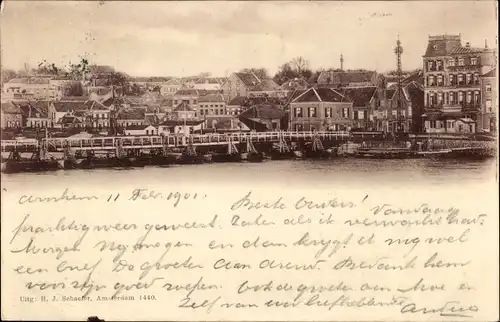 Arnhem 11 Febr. 1901. Beste Ouders! Vandaag
prachtig weer geweest. Zeker als ik verwacht had.
Morgen Nijmegen en dan krijgt u nog wel
een brief. De groeten aan Bedank hem
voor zijn goed wezen. Ook de groeten aan Moe en
Zelf van uw liefhebbende
Uitg: H. J. Schaefer, Amsterdam 1440.